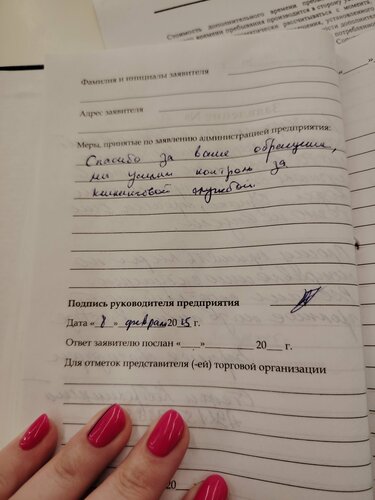 Стоимость дополнительного времени
времени пребывания производится в сторону
рассчитаться с момента,
Фамилия и инициалы заявителя
Адрес заявителя
Меры, принятые по заявлению администрацией предприятия:
Спасибо за ваше обращение,
мы усилим контроль за
клининговой службой
Подпись руководителя предприятия
Дата «8» февраля 2025 г.
Ответ заявителю послан «___» ________ 20___ г.
Для отметок представителя (-ей) торговой организации
20